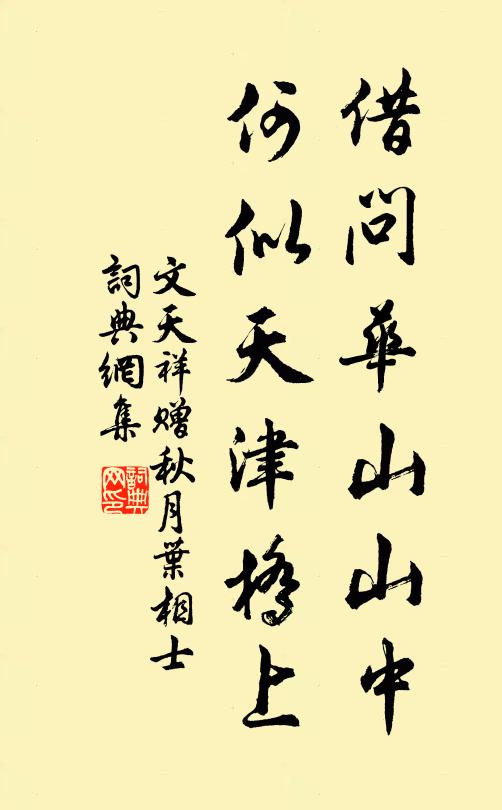 借问華山山中
何似天津橋上
文天祥赠秋月葉相士
詞典網集
詞典网印